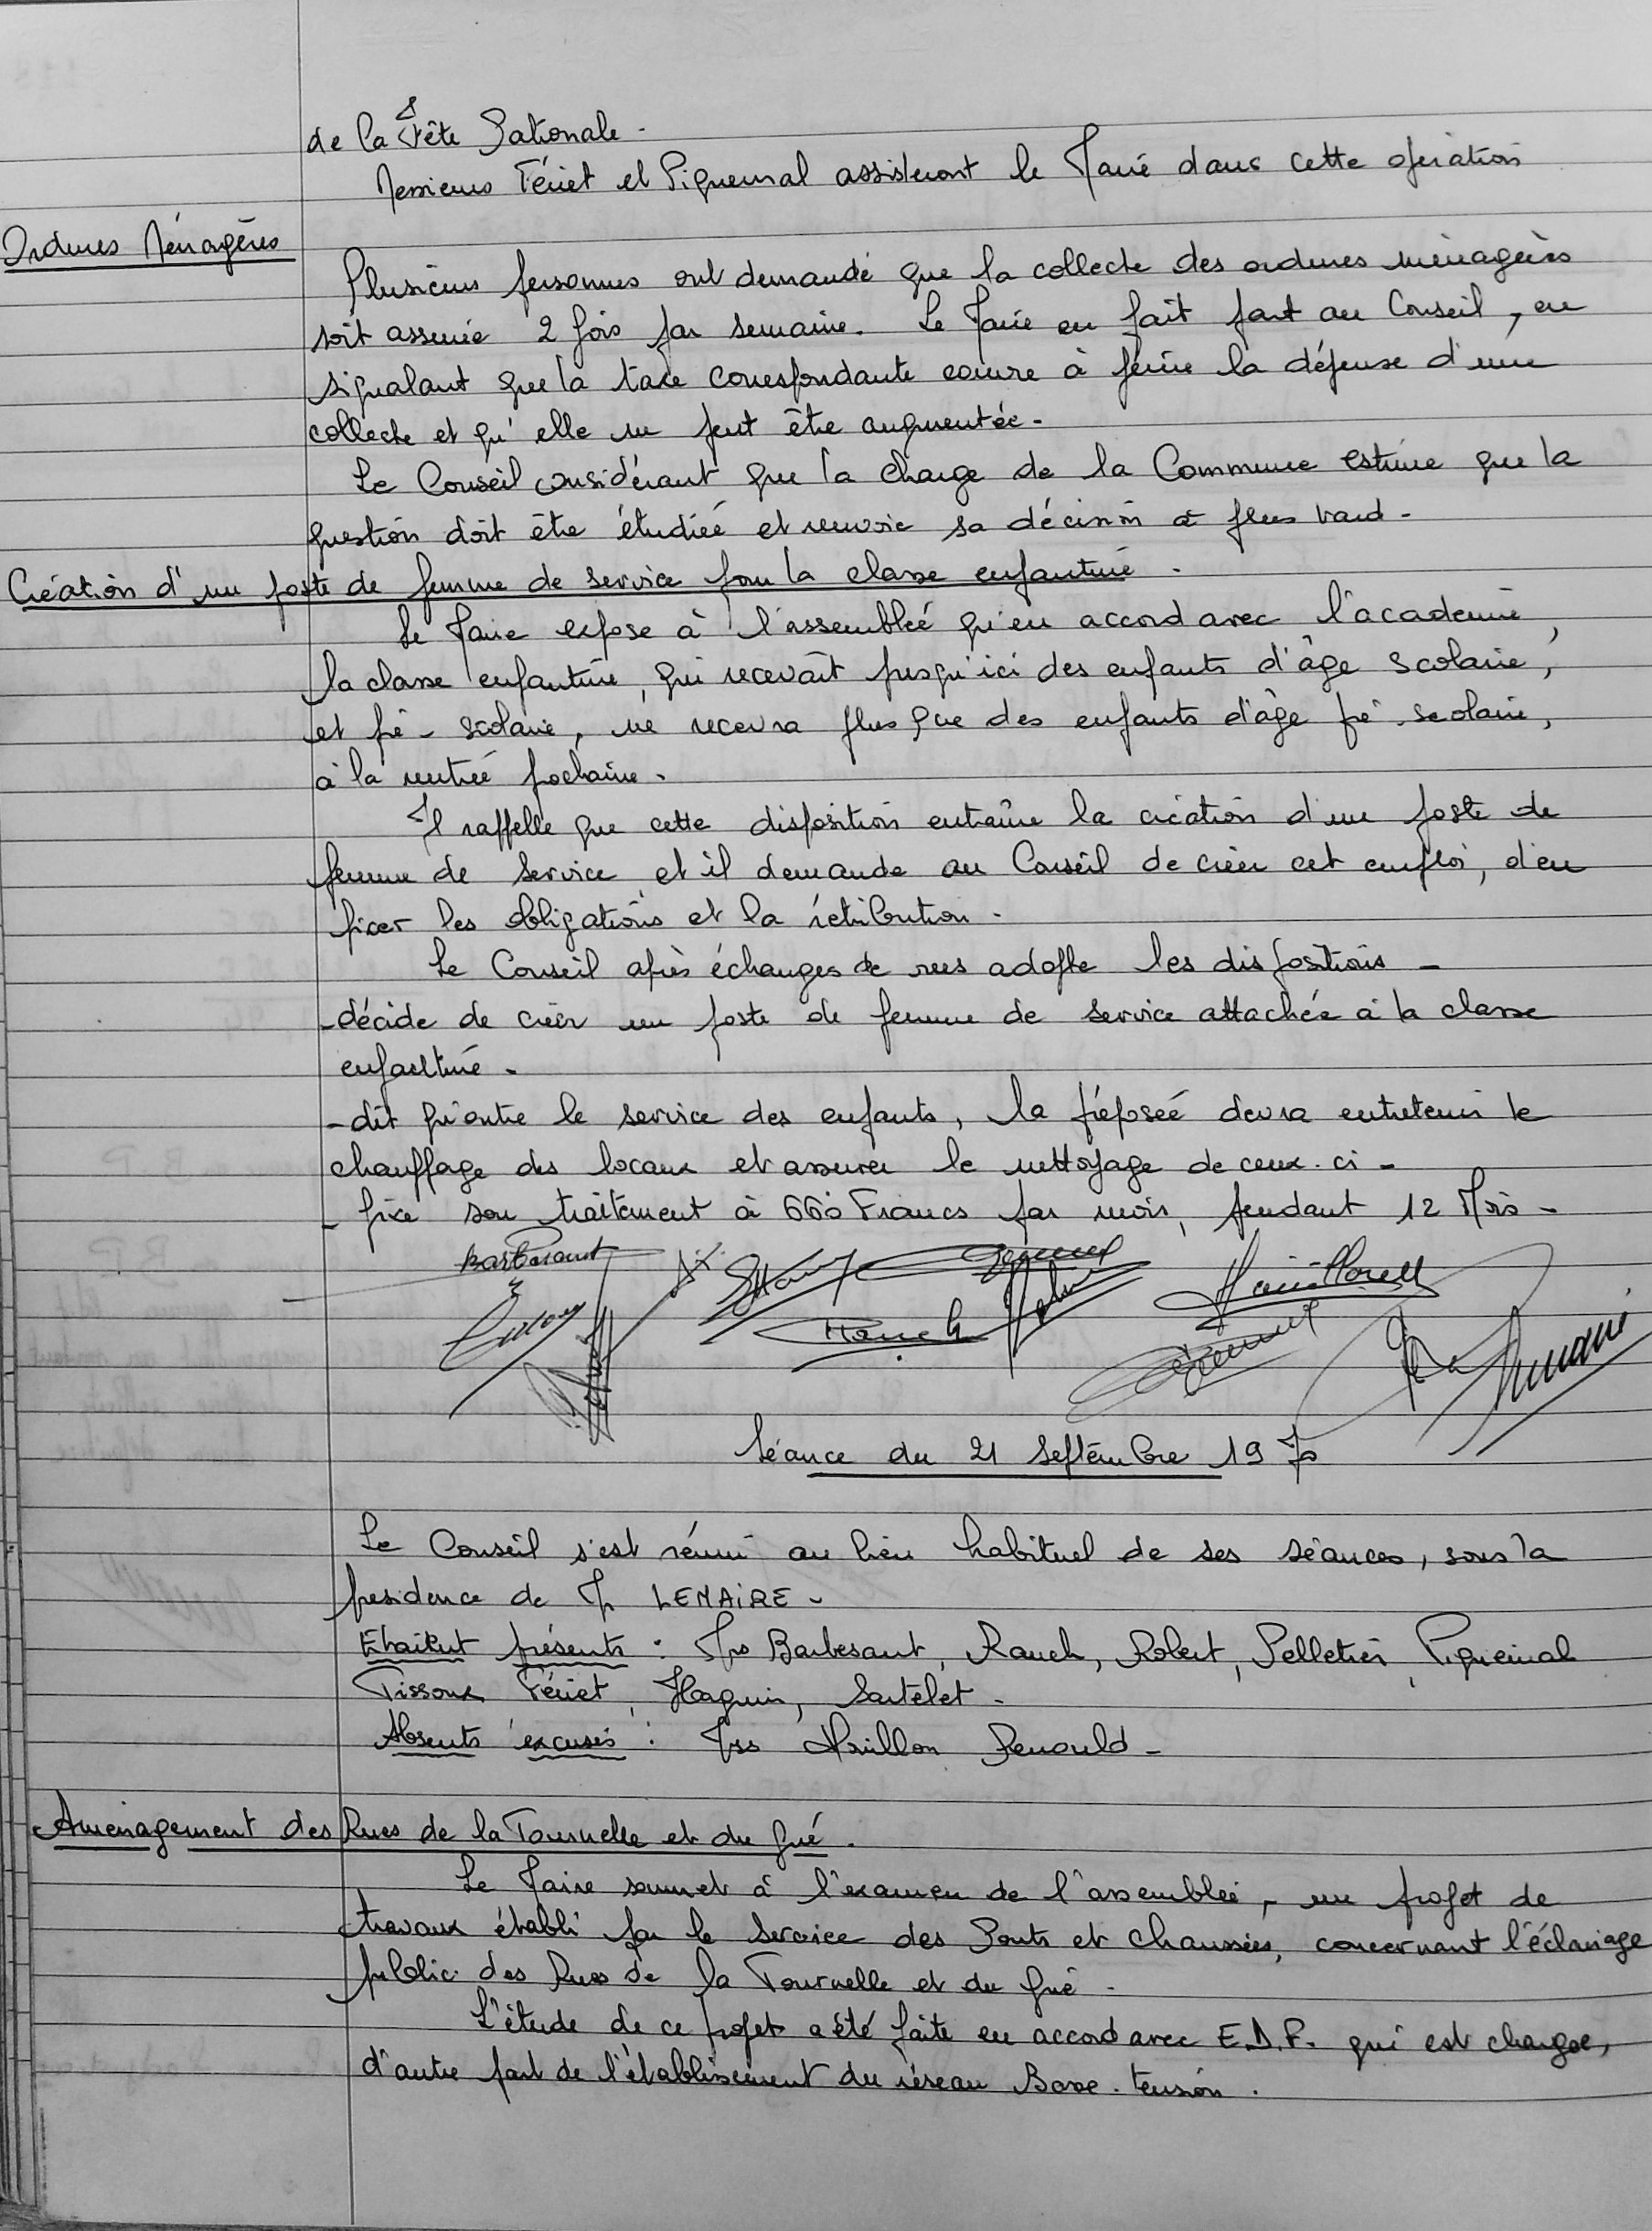 de la Fête Nationale -
Messieurs Fériet et Piquemal assisteront le Maire dans cette opération
Ordures Ménagères
Plusieurs personnes ont demandé que la collecte des ordures ménagères
soit assurée 2 fois par semaine. Le Maire en fait part au Conseil, en
signalant que la taxe correspondante couvre à peine la dépense d'une
collecte et qu'elle ne peut être augmentée -
Le Conseil considérant que la charge de la Commune estime que la
question doit être étudiée et renvoie sa décision à plus tard -
Création d'un poste de femme de service pour la classe enfantine -
Le Maire expose à l'assemblée qu'en accord avec l'académie,
la classe enfantine, qui recevait jusqu'ici des enfants d'âge scolaire,
et pré-scolaire, ne recevra plus que des enfants d'âge pré-scolaire,
à la rentrée prochaine -
Il rappelle que cette disposition entraîne la création d'un poste de
femme de service et il demande au Conseil de créer cet emploi, d'en
fixer les obligations et la rétribution -
Le Conseil après échanges de vues adopte les dispositions -
- décide de créer un poste de femme de service attachée à la classe
enfantine -
- dit qu'outre le service des enfants, la préposée devra entretenir le
chauffage des locaux et assurer le nettoyage de ceux-ci -
- fixe son traitement à 660 Francs par mois, pendant 12 Mois -
Barbesant
Séance du 21 Septembre 1970
Le Conseil s'est réuni au lieu habituel de ses séances, sous la
présidence de M LEMAIRE -
Etaient présents : Mrs Barbesant, Rauch, Robert, Pelletier, Piquemal
Tissoux, Fériet, Haguin, Sartelet -
Absents excusés : Mrs Renould -
Aménagement des Rues de la Tournelle et du Gué.
Le Maire soumet à l'examen de l'assemblée, un projet de
travaux établi par le Service des Ponts et Chaussées, concernant l'éclairage
public des Rues de la Tournelle et du Gué -
L'étude de ce projet a été faite en accord avec E.D.F. qui est chargée,
d'autre part de l'établissement du réseau Basse-tension.